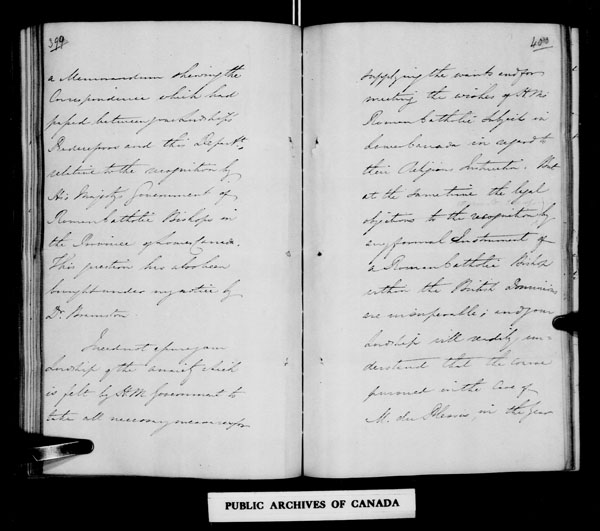 399
a Memorandum shewing the
Correspondence which had
passed between your Lordship's
Predecessors and this Departt.
relative to the recognition by
His Majesty's Government of
Roman Catholic Bishops in
the Province of Lower Canada.
This question has also been
brought under my notice by
Dr.
I need not assure your
Lordship of the anxiety which
is felt by H.M. Government to
take all necessary measures for
400
supplying the wants and for
meeting the wishes of H.M.
Roman Catholic Subjects in
Lower Canada in regard to
their Religious Instruction. But
at the same time the legal
objections to the recognition by
any formal Instrument of
a Roman Catholic Bishop
within the British Dominions
are insuperable; and your
Lordship will readily un-
derstand that the course
pursued in the Case of
M. du Plessis, in the year
PUBLIC ARCHIVES OF CANADA